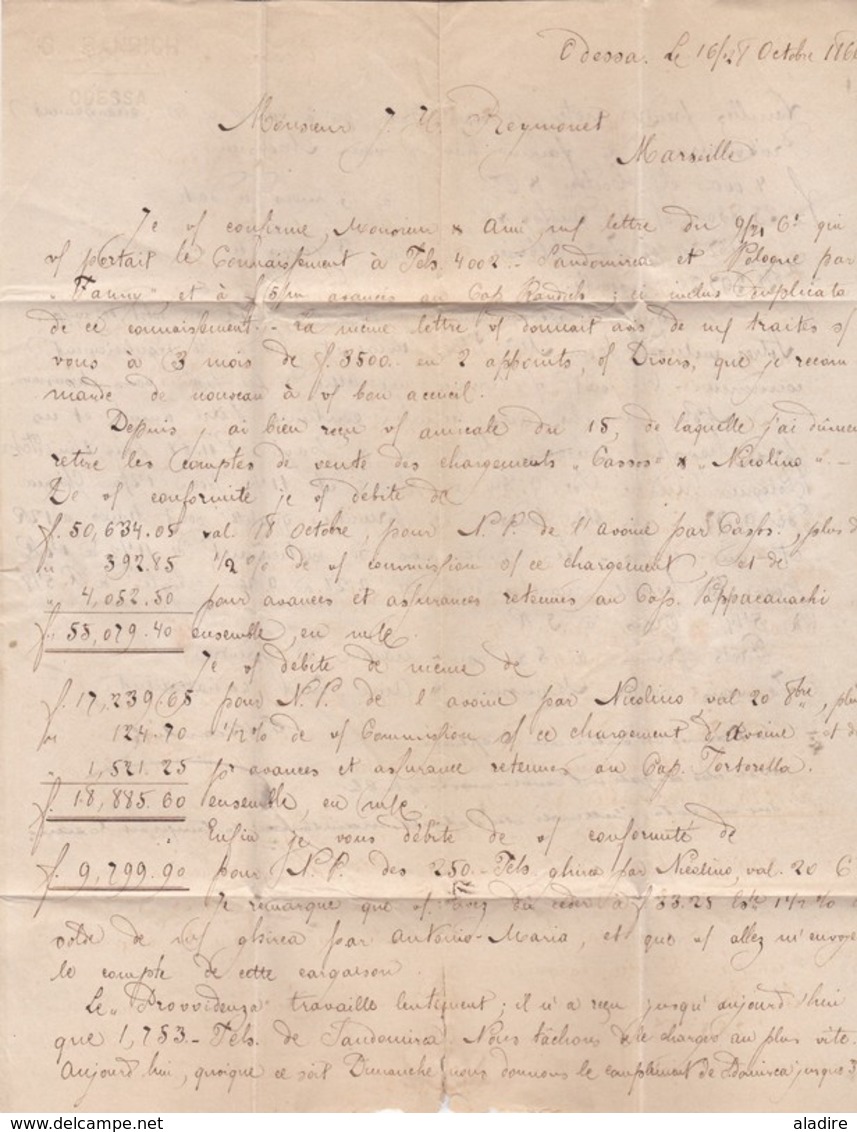 ODESSA
Odessa. Le 16/28 Octobre 186
Monsieur J. H. Reymonet
Marseille
Je vs confirme, Monsieur & Ami ms lettre du 9/21 Ct qui
vs portait le Connaissement à Tchs. 4002.- Sandomirca et Pologne par
"Fanny", et à f 5/m avancés au Cap ; ci inclus Duplicata
de ce connaissement.- La même lettre vs donnait avis de ms traites s/
vous à 3 mois de f. 3500.- en 2 appoints, o/ Divers, que je recom
mande de nouveau à vs bon accueil.
Depuis j'ai bien reçu vs amicale du 15, de laquelle j'ai dûmen
retiré les Comptes de vente des chargements "Cassos" & "Nicolino".-
De vs conformité je vs débite de
f. 50,634.05 val. 18 Octobre, pour N.P. de l'avoine par Cassos, plus d
" 392.85 1/2 % de vs commission s/ ce chargement, et de
" 4,052.50 pour avances et assurances retenues au Cap. Pappacanachi
f. 55,079.40 ensemble, en
Je vs débite de même de
f. 17,239.65 pour N.P. de l'avoine par Nicolino, val 20 8bre, plu
" 124.70 1/2 % de vs Commission s/ ce chargement d'Avoine - et d
" 1,521.25 pr avances et assurance retenues au Cap. Tortorella.
f. 18,885.60 ensemble, en
Enfin je vous débite de vs conformité de
f. 9,799.90 pour N.P. des 250.- Tchs. ghirca par Nicolino, val. 20 Ct
Je remarque que vs avez dû céder à f 33.25 1 1/2 %
solde de ghirca par Antonio-Maria, et que vs allez m'envoye
le compte de cette cargaison.
Le "Provvidenza" travaille lentement; il n'a reçu jusqu'aujourd'hui
que 1,753.- Tchs. de Sandomirca. Nous tâchons de le charger au plus vite.
Aujourd'hui, quoique ce soit Dimanche, nous donnons le complément de jusque 3
© aladire